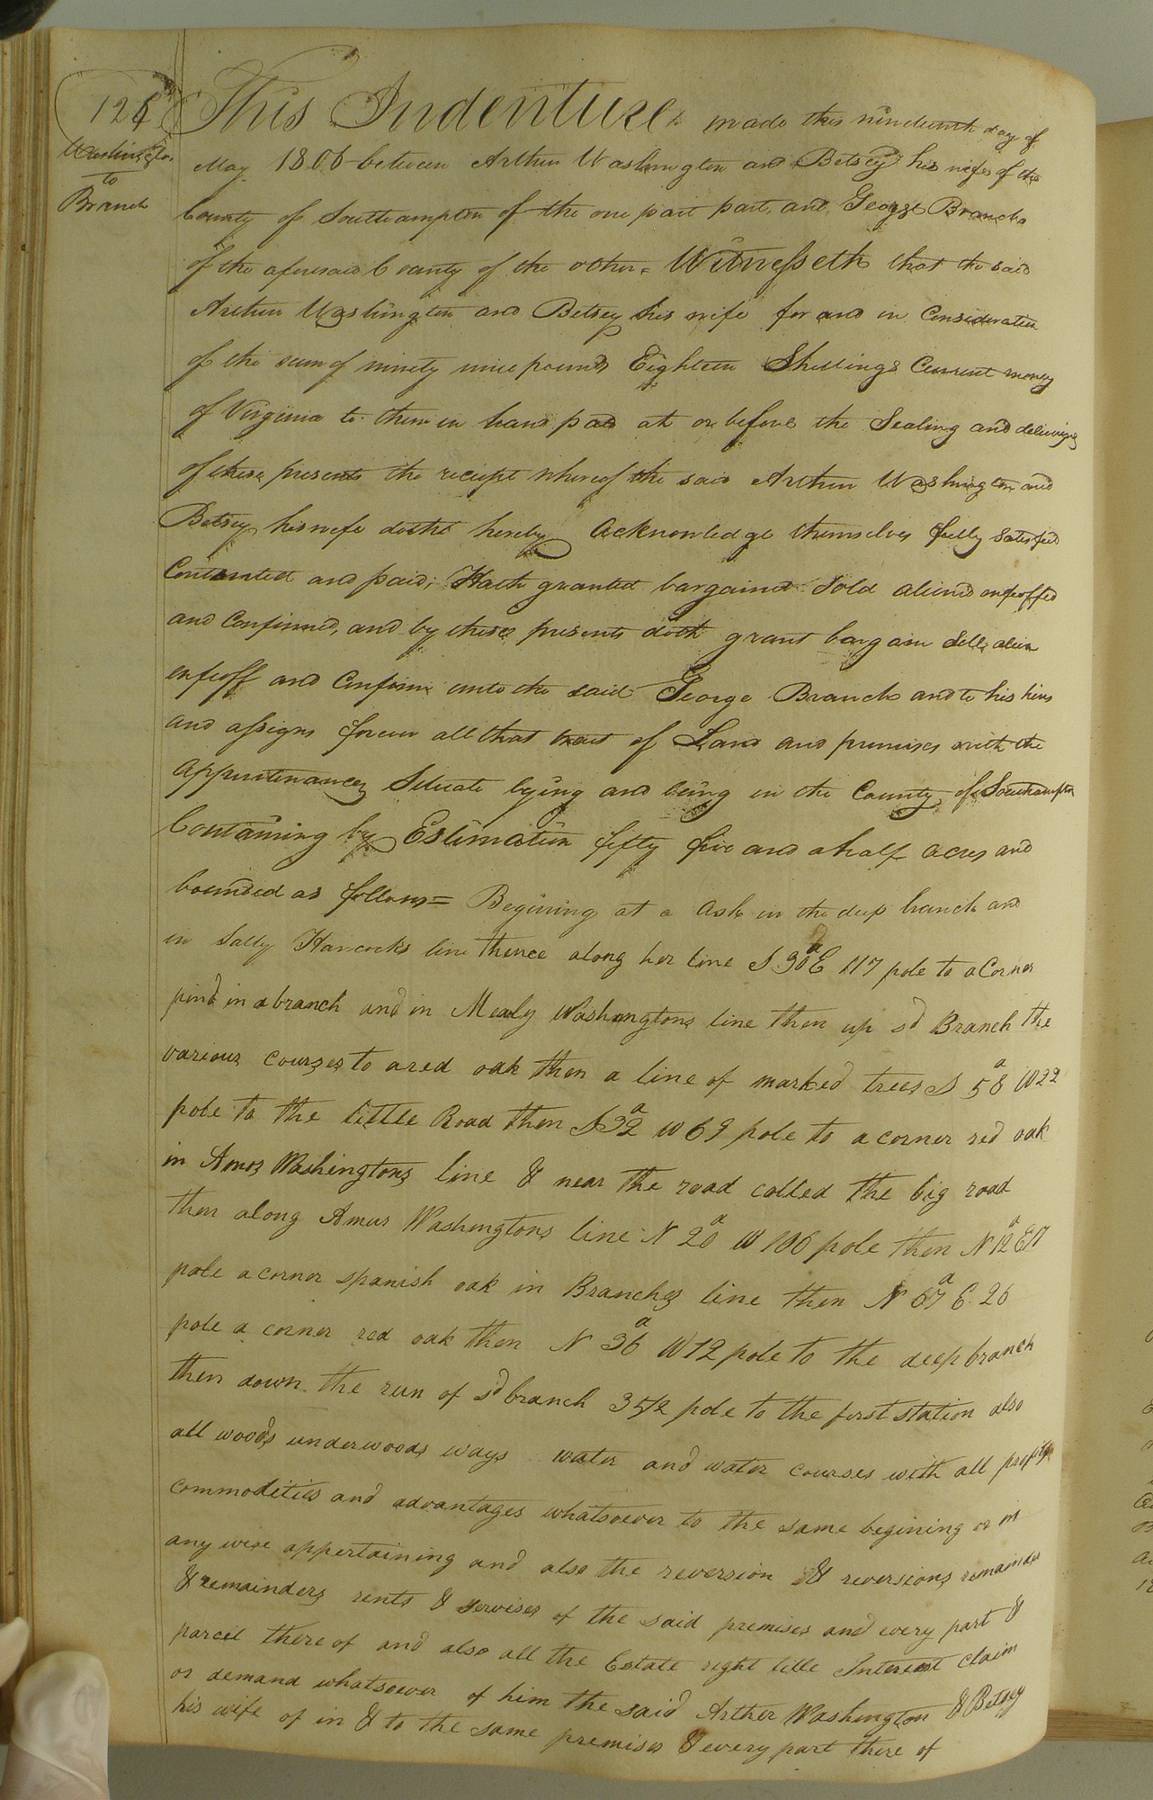 124
Washington
to
Branch
This Indenture made this nineteenth day of
May 1806 between Arthur Washington and Betsey his wife of the
County of Southampton of the one part part, and George Branch
of the aforesaid County of the other. Witnesseth that the said
Arthur Washington and Betsey his wife for and in Consideration
of the sum of ninety nine pounds Eighteen Shillings Current money
of Virginia to them in hand paid at or before the Sealing and delivering
of these presents the receipt whereof the said Arthur Washington and
Betsey his wife doth hereby acknowledge themselves fully satisfied
Contented and paid; Hath granted bargained Sold aliend enfeoffed
and Confirmed, and by these presents doth grant bargain Sell alien
enfeoff and Confirm unto the said George Branch and to his heirs
and assigns forever all that tract of Land and premises with the
appurtenances Situate lying and being in the County of Southampton
Containing by Estimation fifty five and a half acres and
bounded as follows = Begining at a Ash in the deep branch and
in Sally Hancocks line thence along her line S 30 E 117 pole to a Corner
pine in a branch and in Mealy Washingtons line then up sd Branch the
various courses to a red oak then a line of marked trees S 58 W 22
pole to the little Road then S 32 W 69 pole to a corner red oak
in Amos Washingtons line & near the road called the big road
then along Amus Washingtons line N 20 W 106 pole then N 12 E 17
pole a corner spanish oak in Branches line then N 67 E. 26
pole a corner red oak then N 36 W 12 pole to the deep branch
then down the run of sd branch 35 1/2 pole to the first station also
all woods underwoods ways water and water courses with all profits
commodities and advantages whatsoever to the same begining or in
any wise appertaining and also the reversion & reversions remainder
& remainders rents & servises of the said premises and every part &
parcel there of and also all the Estate right title Interest claim
or demand whatsoever of him the said Arther Washington & Betsey
his wife of in & to the same premises & every part there of